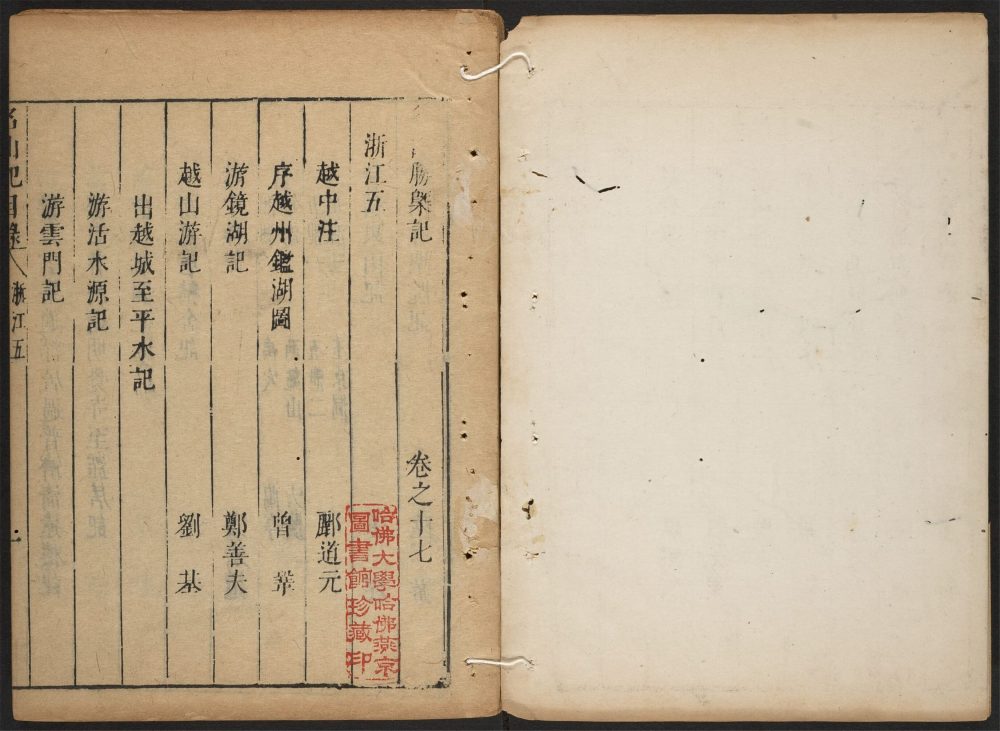 勝槩記 卷之十七
浙江五
越中注 酈道元
序越州鑑湖圖 曾鞏
游鏡湖記 鄭善夫
越山游記 劉基
出越城至平水記
游活水源記
游雲門記
名山記目錄 浙江五 一
哈佛大學哈佛燕京
圖書館珍藏印